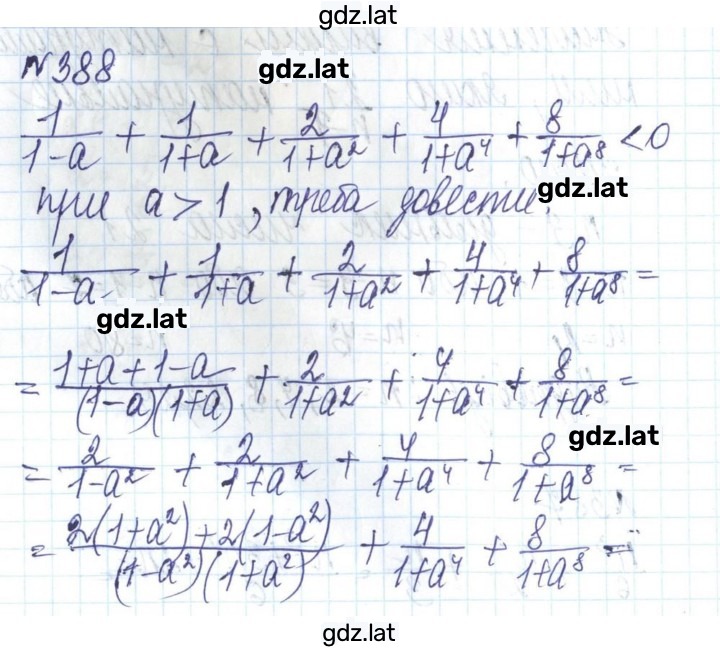 gdz.lat
№388
gdz.lat
1/(1-a) + 1/(1+a) + 2/(1+a²) + 4/(1+a⁴) + 8/(1+a⁸) < 0
gdz.lat
при a > 1, треба довести:
1/(1-a) + 1/(1+a) + 2/(1+a²) + 4/(1+a⁴) + 8/(1+a⁸) =
gdz.lat
= (1+a+1-a)/((1-a)(1+a)) + 2/(1+a²) + 4/(1+a⁴) + 8/(1+a⁸) =
gdz.lat
= 2/(1-a²) + 2/(1+a²) + 4/(1+a⁴) + 8/(1+a⁸) =
= (2(1+a²)+2(1-a²))/((1-a²)(1+a²)) + 4/(1+a⁴) + 8/(1+a⁸) =
gdz.lat